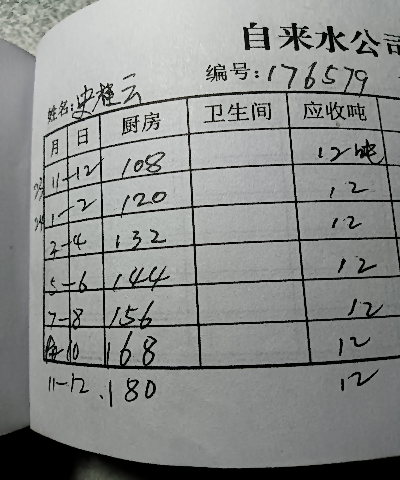 自来水公司
编号:176579
姓名:史桂云
月 日 厨房 卫生间 应收吨
11-12 108 12吨
1-2 120 12
3-4 132 12
5-6 144 12
7-8 156 12
10 168 12
11-12 180 12